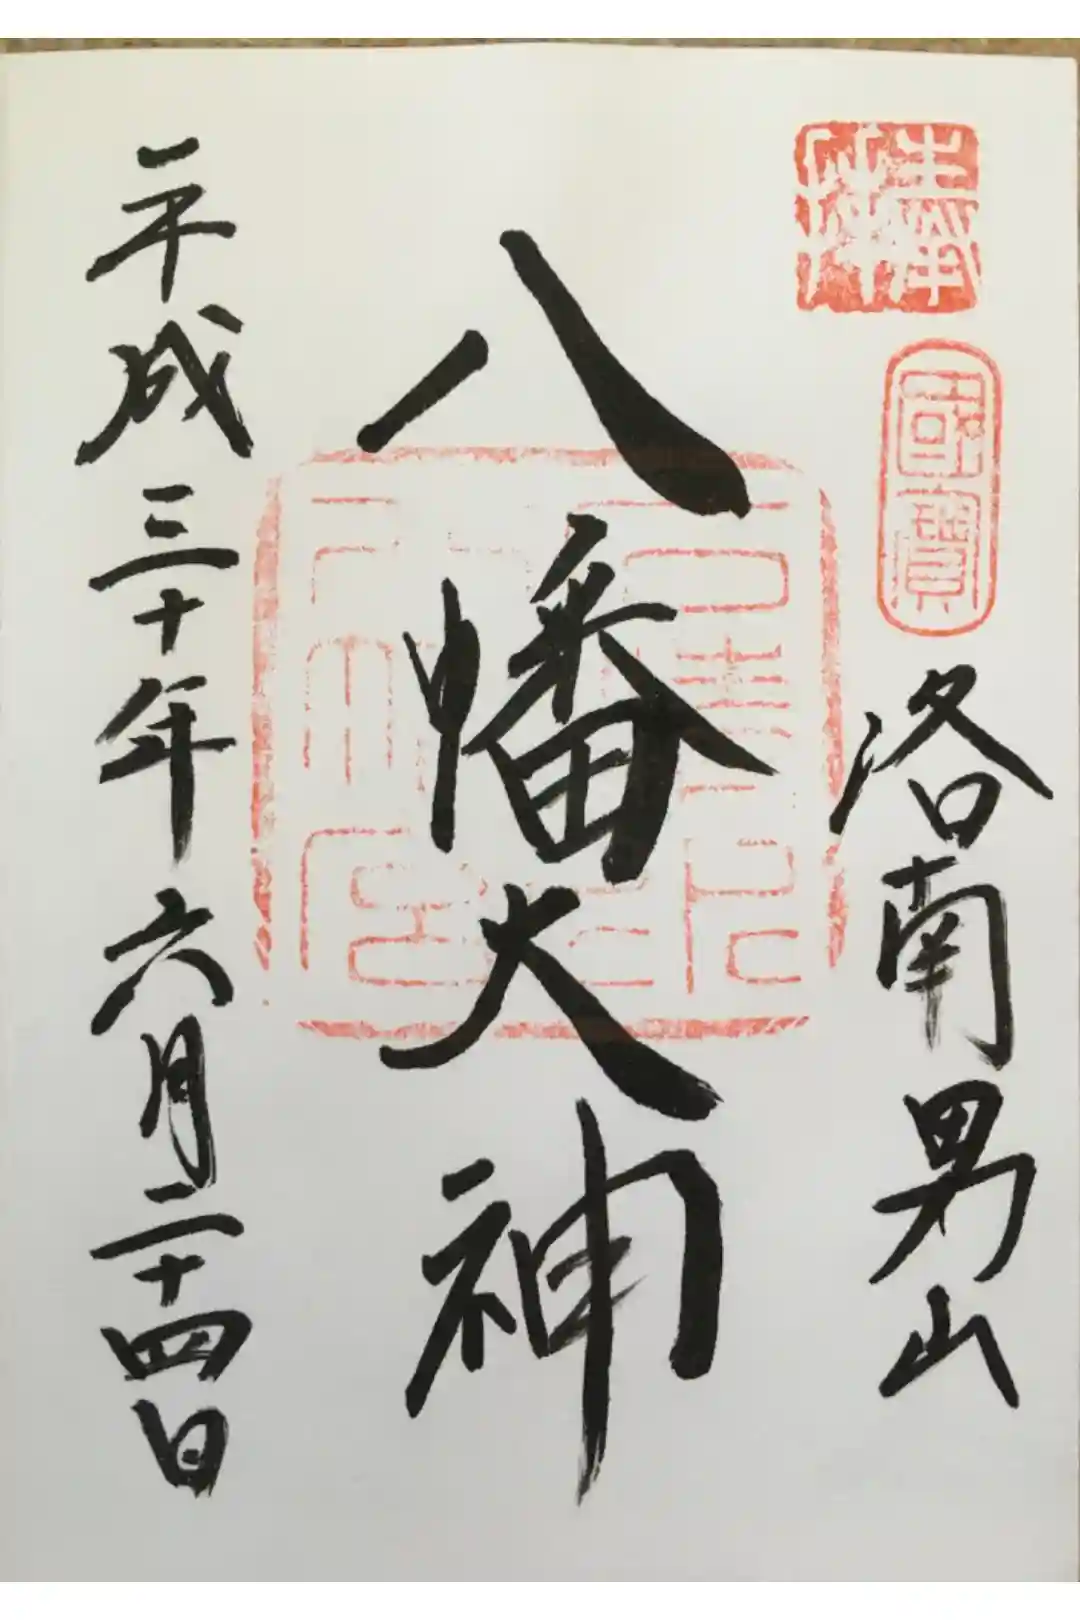 奉拝
國寳
洛南男山
八幡大神
平成三十年六月二十四日